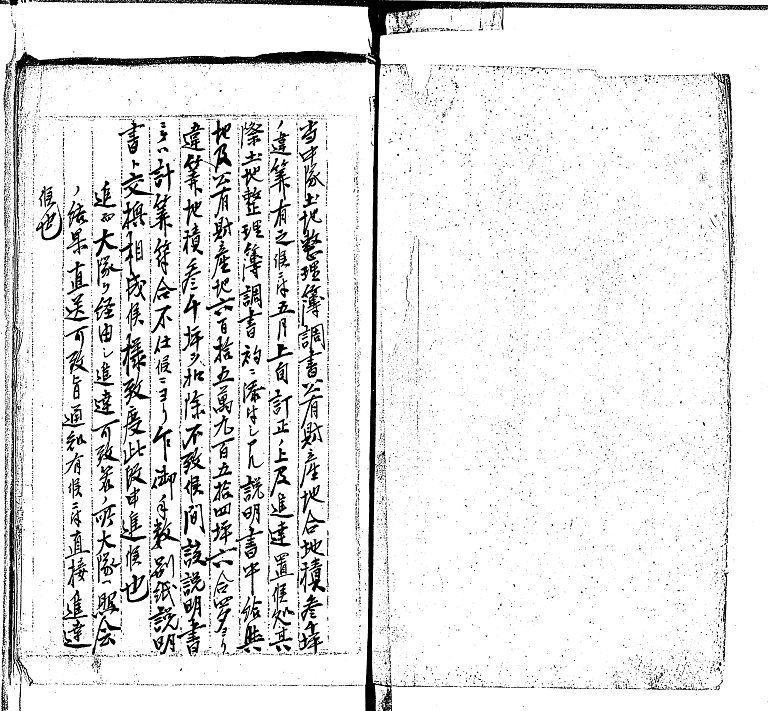 当中隊土地整理簿調書公有財産地合地積参千坪
ノ違算有之候ニ付五月上旬訂正ノ上及進達置候処其
際土地整理簿調書袀ニ添付シアル説明書中ニ給与
地及公有財産地六百拾五萬九百五拾四坪六合四夕ヨリ
違算ノ地積参千坪ヲ扣除不致候間該説明書
ニテハ計算符合不仕候ニヨリ乍御手数別紙説明
書ト交換相成候様致度此段申進候也
追而大隊ヲ経由シ進達可致若ノ所大隊ヘ照会
ノ結果直送可致旨通知有候ニ付直接進達
候也